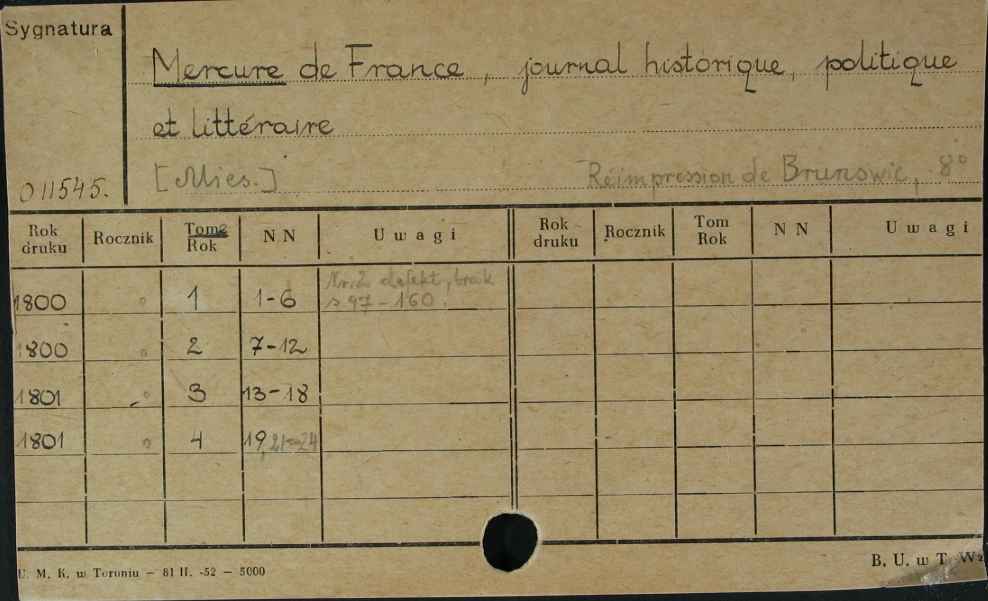 Sygnatura
Mercure de France, journal historique, politique
et littéraire
011545.
[Mies.] Réimpression de Brunswic, 8°
Rok druku Rocznik Tome Rok N N Uwagi Rok druku Rocznik Tom Rok N N Uwagi
1800 1 1-6 Nr. 2 defekt, brak s 97-160.
1800 2 7-12
1801 3 13-18
1801 4 19, 21-24
U. M. K. w Toruniu — 81 II. -52 — 5000
B. U. w T.